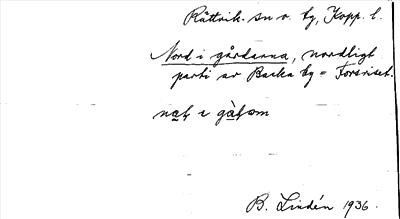 Rättvik. sn o. by, Kopp. l.
Nord i gårdarna, nordligt
parti av Backa by = Forsriset.
nat i gàtom
B. Lindén 1936.